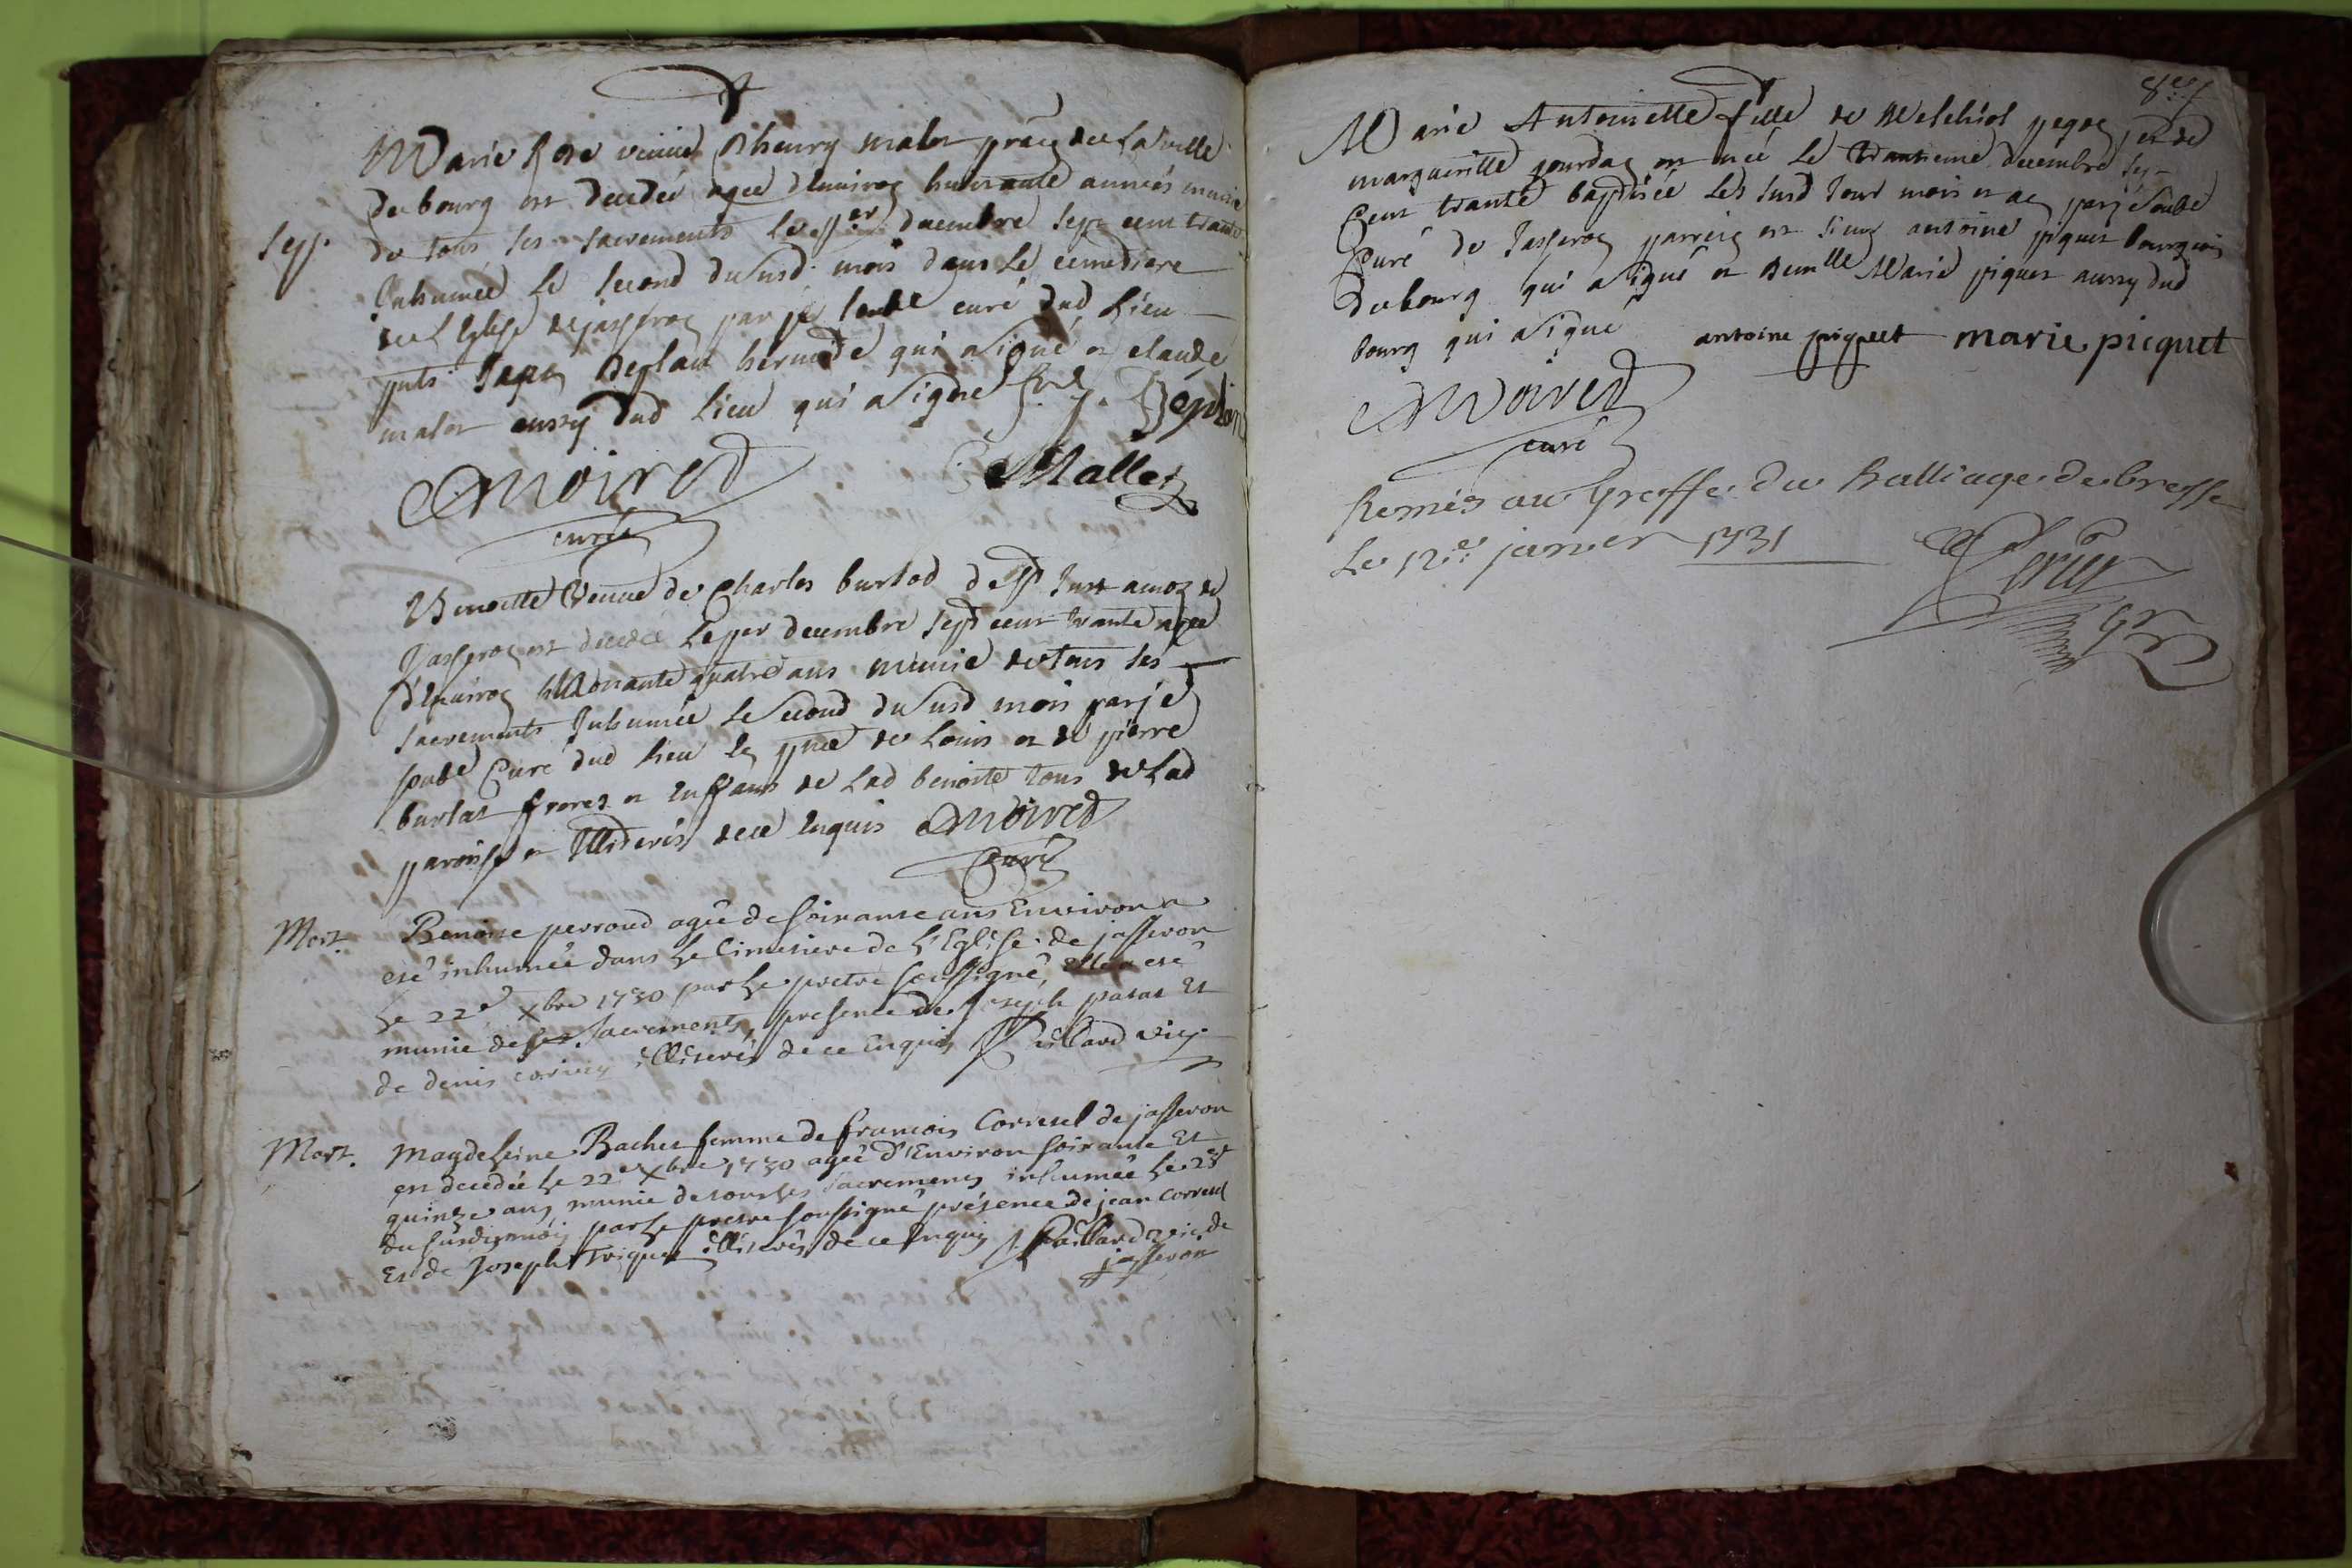 Marie Rose veuve d'heury malot de la ville
de bourg est decedée agee d'environ huitante années munie
Sep. de tous ses sacrements le per decembre sept cent trante
Inhumée le second dususd. mois dans le cemetiere
de l'Eglise de jasseron par je soubs curé dud Lieu
qui a signé et claude
malot aussy dud Lieu qui a signé
Moiret Mallet
curé
Benoitte veuve de Charles burlod de St Just anoz de
Jasseron est decedée le per decembre sept cent trante agee
d'environ quatre ans munie de tous ses
sacrements Inhumée le second dususd mois par je
soubs Curé dud lieu en pnce de Louis et de pierre
burlat freres et enffans de Lad benoite tous de Lad
paroisse et Illiterés de ce enquis Moiret
Curé
Mort. Benoite perroud agée de soixante ans Environ a
eté inhumée dans le Cimetiere de L'Eglise de jasseron
le 22e xbre 1730 par le pretre soussigné, elle a eté
munie de ses sacrements, presence de Joseph patat et
de denis illiterés de ce enquis Paillard vic.
Mort. Magdeleine Bachet femme de francois Corretel de jasseron
est decedée le 22e xbre 1730 agée d'Environ soixante et
quinze ans munie de tous les sacrements inhumée le 23e
du susdit mois par le pretre soussigné présence de jean Corretel
et de Joseph triquet illiterés de ce enquis Paillard vic. de
jasseron
Marie Antoinette fille de Melchiol pegoz et de
margueritte gourdaz est neé le trantieme decembre sept
Cent trante baptisée les susd Jour mois et an par je soubs
Curé de Jasseron parrein est sieur antoine piquet bourgeois
de bourg qui a signé et demlle Marie piquet aussy dud
bourg qui a signé antoine piquet marie picquet
Moiret
curé
Remis au Greffe du Balliage de bresse
Le 12e: janvier 1731